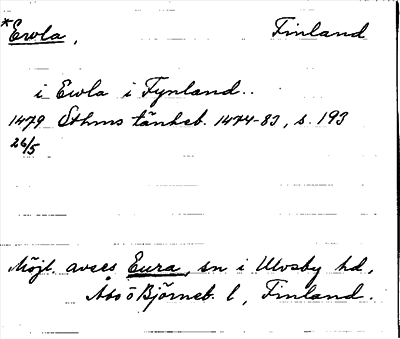 *Ewla, Finland
i Ewla i Fynland..
1479 Sthms tänkeb. 1474-83, s. 193
26/5
Möjl. avses Eura, sn i Ulvsby hd,
Åbo o Björneb. l, Finland.